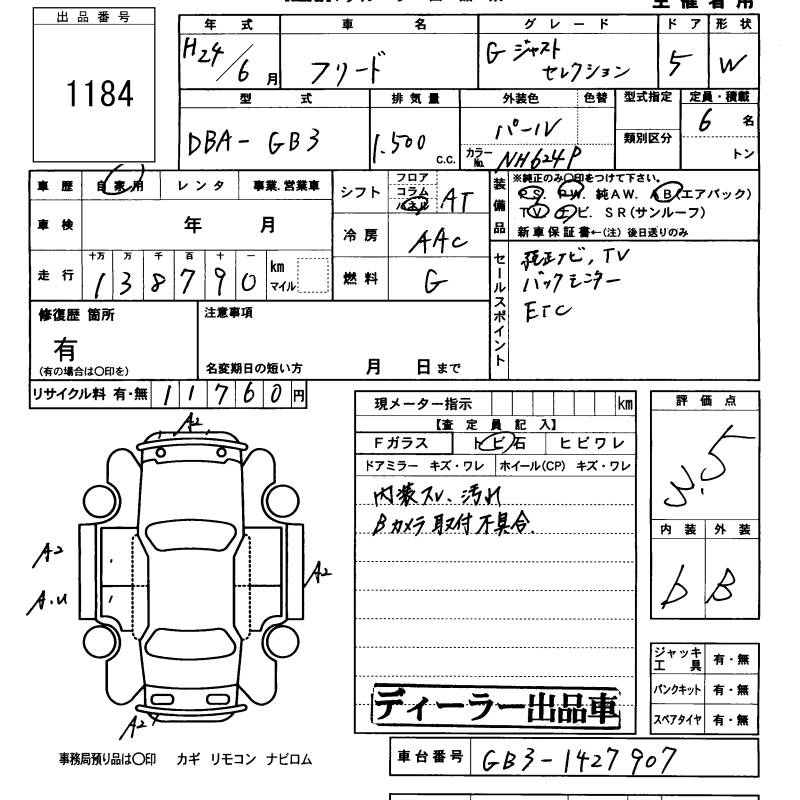 主催者用
出品番号
1184
年式 車名 グレード ドア 形状
H24/6月 フリード G ジャスト セレクション 5 W
型式 排気量 外装色 色替 型式指定 定員・積載
DBA-GB3 1.500 c.c. パール 6名
カラーNo. NH624P 類別区分 トン
車歴 自家用 レンタ 事業.営業車
シフト フロア コラム パネル AT
装備品 ※純正のみ○印をつけて下さい。
PS. PW. 純AW. AB(エアバック)
TV ナビ. SR(サンルーフ)
新車保証書←(注) 後日送りのみ
車検 年 月
冷房 AAC
走行 十万 万 千 百 十 一
138790 km マイル
燃料 G
セールスポイント
純正ナビ, TV
バックモニター
ETC
修復歴 箇所
有
(有の場合は○印を)
注意事項
名変期日の短い方 月 日まで
リサイクル料 有・無 11760円
現メーター指示 km
【査定員記入】
Fガラス トビ石 ヒビワレ
ドアミラー キズ・ワレ ホイール(CP) キズ・ワレ
内装スレ、汚れ
Bカメラ取付不具合.
ディーラー出品車
評価点
3.5
内装 外装
b B
ジャッキ工具 有・無
パンクキット 有・無
スペアタイヤ 有・無
A2
A2
A.U
A2
A2
事務局預り品は○印 カギ リモコン ナビロム
車台番号 GB3-1427907